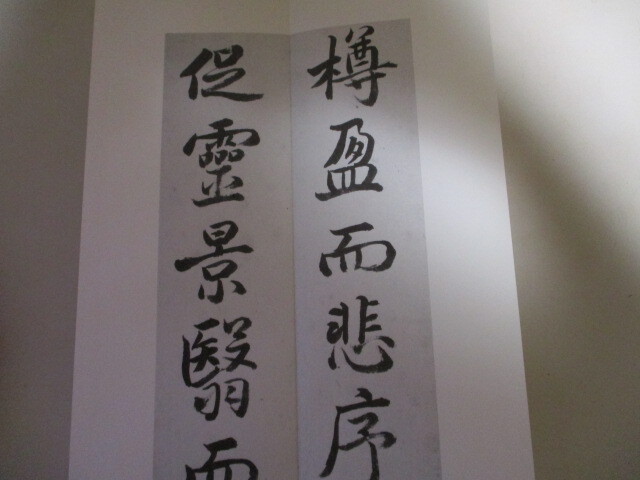 樽盈而悲序
促靈景翳而